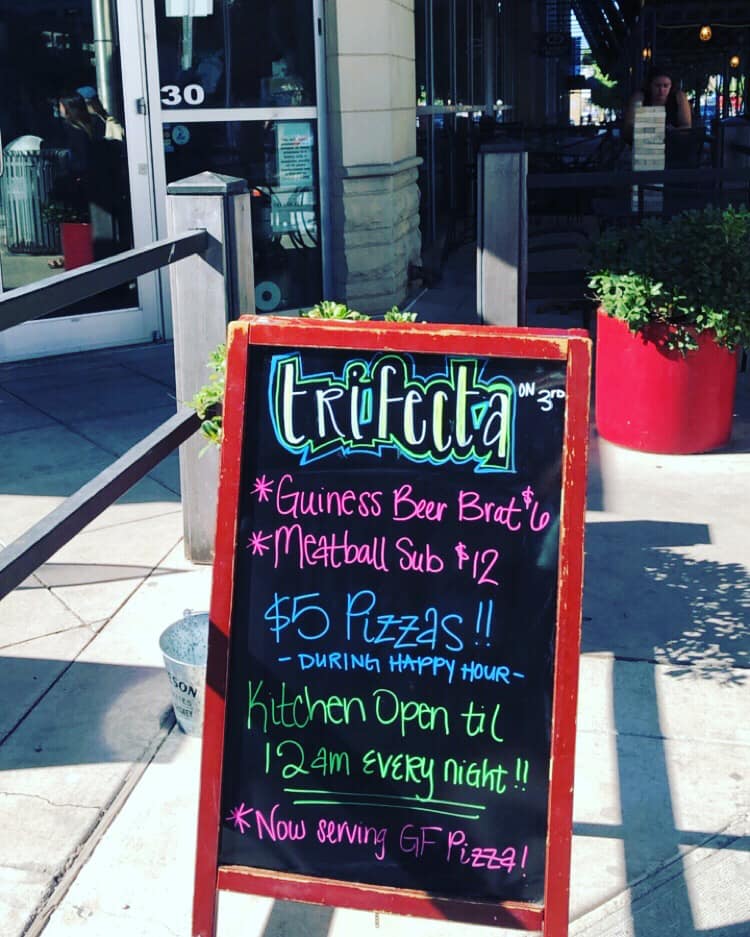 30
trifecta ON 3RD
*Guiness Beer Brat $6
*Meatball Sub $12
$5 Pizzas!!
- DURING HAPPY HOUR -
Kitchen Open til
12am EVERY night!!
*Now serving GF Pizza!